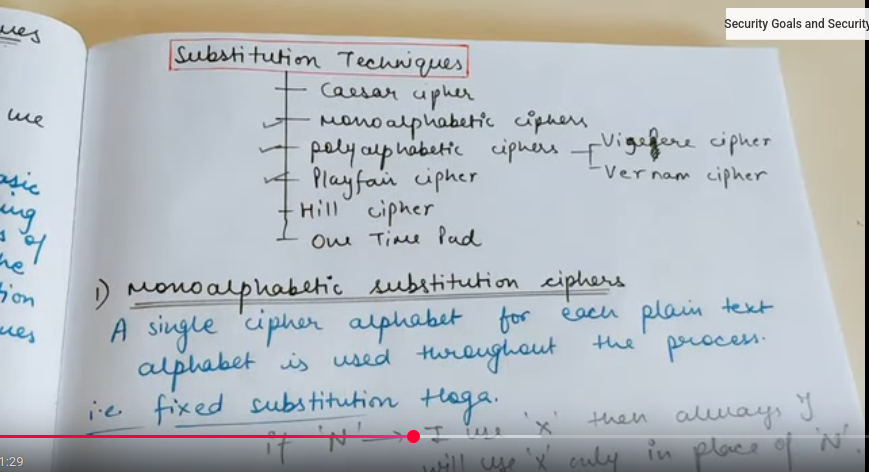 Security Goals and Security
ues
Substitution Techniques
Caesar cipher
me
Monoalphabetic ciphers
polyalphabetic ciphers
Vigegere cipher
Vernam cipher
Playfair cipher
Hill cipher
One Time Pad
asic
ing
s of
he
ion
ues
1) Monoalphabetic substitution ciphers
A single cipher alphabet for each plain text
alphabet is used throughout the process.
i.e. fixed substitution Hoga.
if 'N' → I use 'x' then always I
will use 'x' only in place of 'N'.
1:29